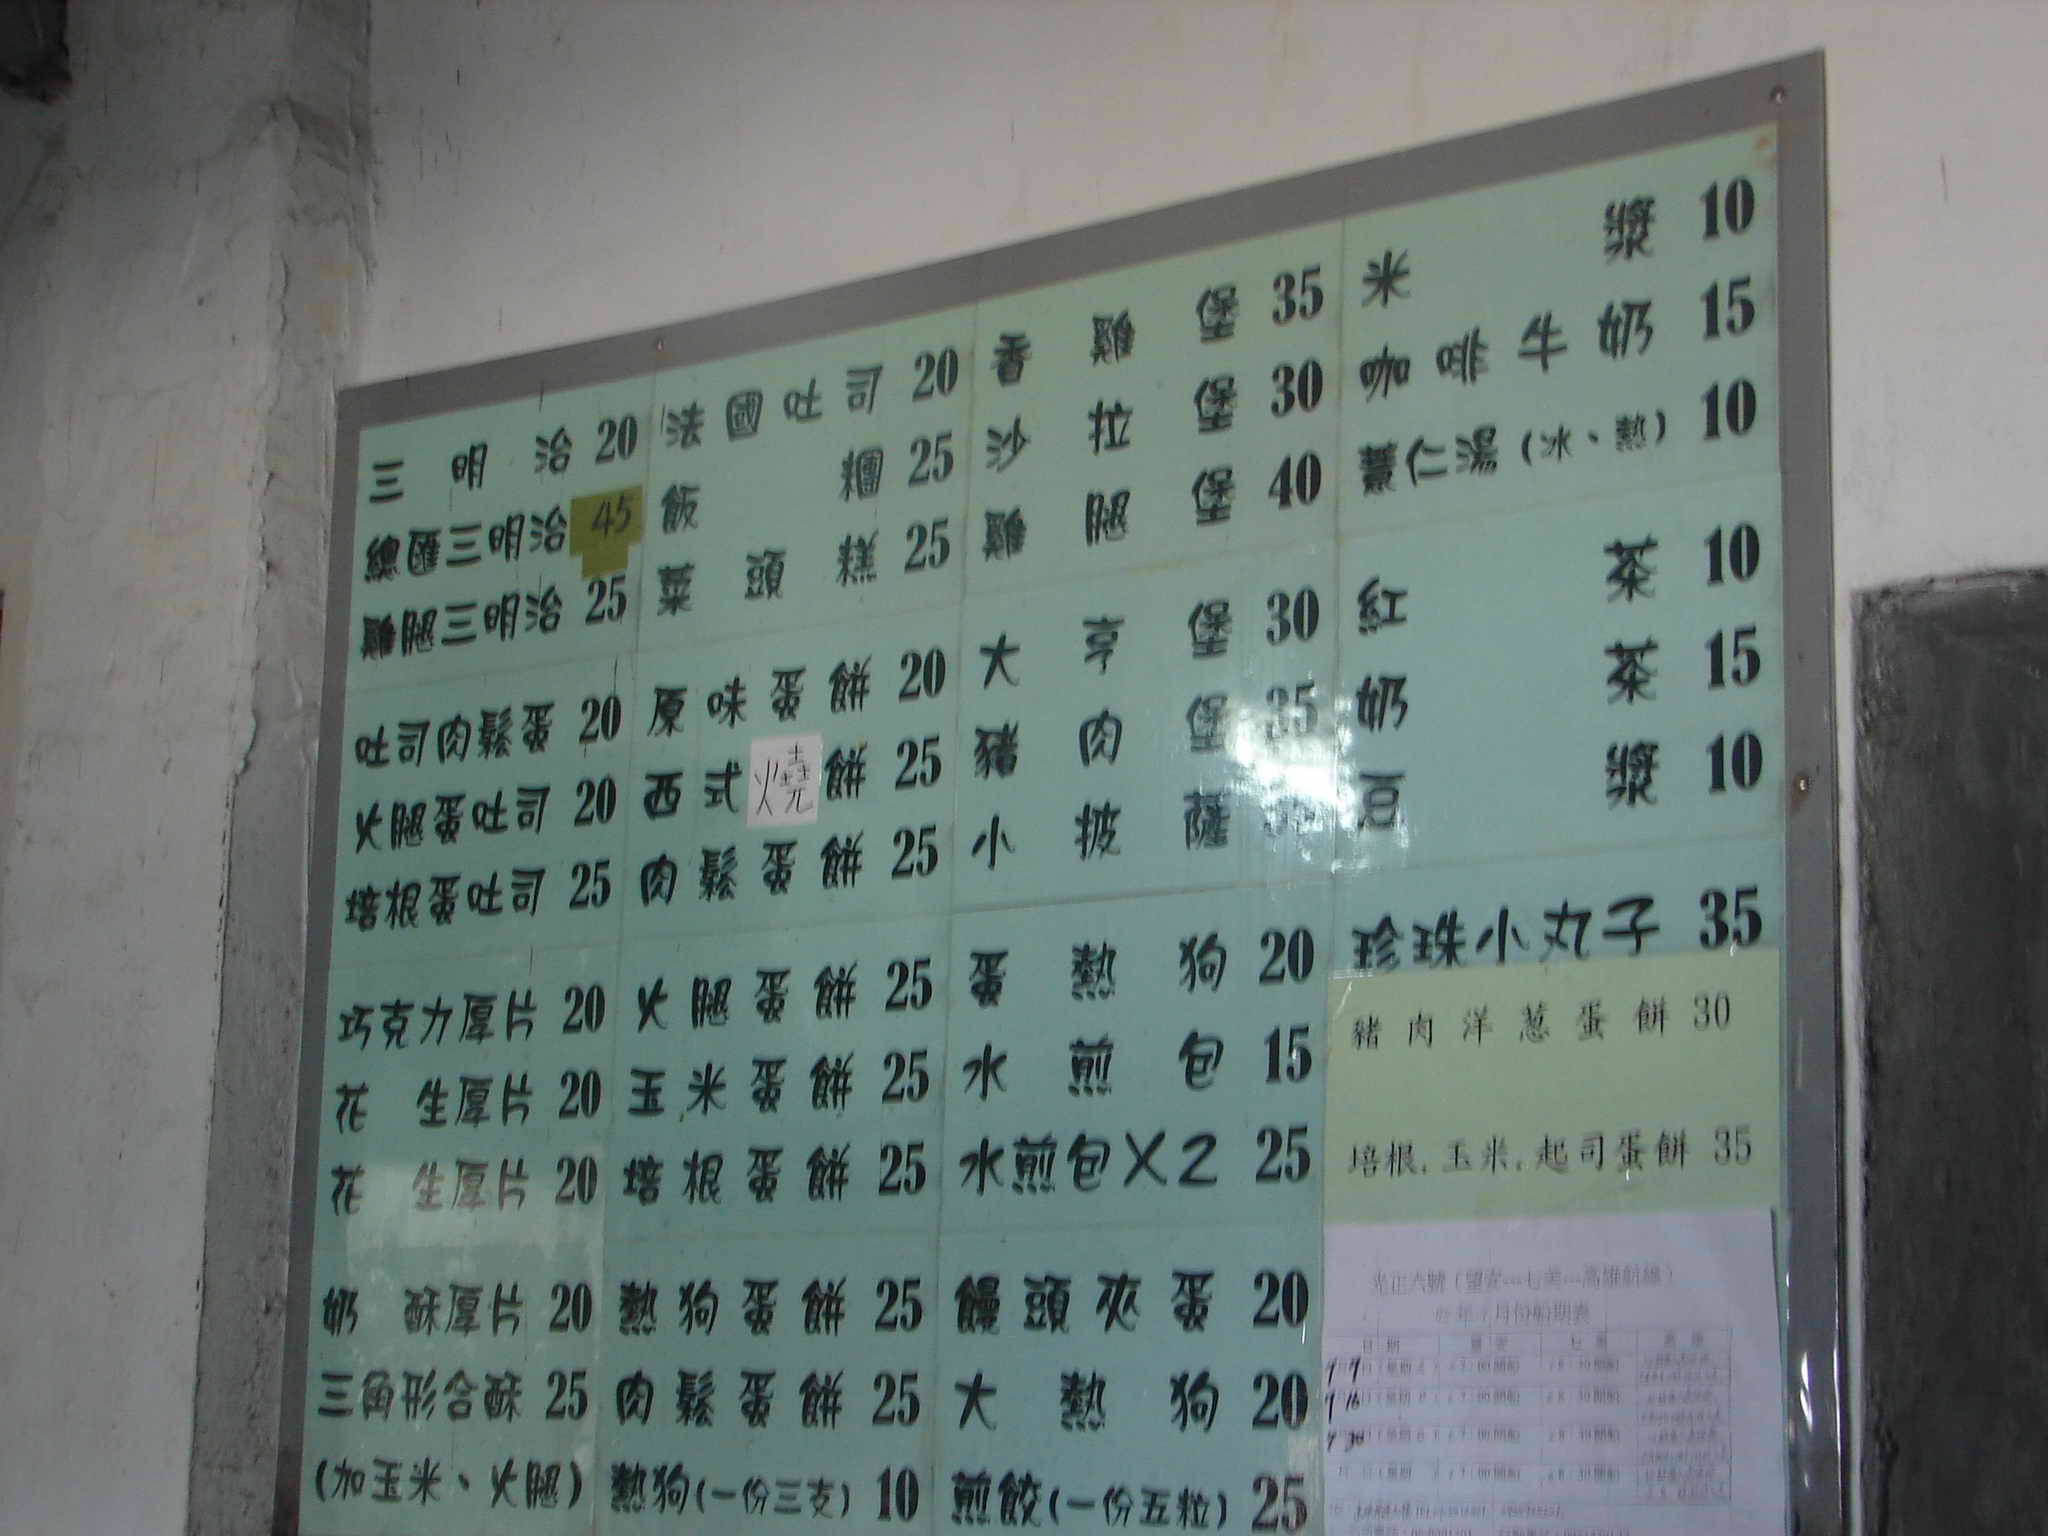 三明治 20
總匯三明治 45
雞腿三明治 25
吐司肉鬆蛋 20
火腿蛋吐司 20
培根蛋吐司 25
巧克力厚片 20
花生厚片 20
花生厚片 20
奶酥厚片 20
三角形合酥 25
(加玉米、火腿)
法國吐司 20
飯糰 25
菜頭糕 25
原味蛋餅 20
西式燒餅 25
肉鬆蛋餅 25
火腿蛋餅 25
玉米蛋餅 25
培根蛋餅 25
熱狗蛋餅 25
肉鬆蛋餅 25
熱狗(一份三支) 10
香雞堡 35
沙拉堡 30
雞腿堡 40
大亨堡 30
豬肉堡 35
小披薩
蛋熱狗 20
水煎包 15
水煎包X2 25
饅頭夾蛋 20
大熱狗 20
煎餃(一份五粒) 25
米漿 10
咖啡牛奶 15
薏仁湯(冰、熱) 10
紅茶 10
奶茶 15
豆漿 10
珍珠小丸子 35
豬肉洋蔥蛋餅 30
培根,玉米,起司蛋餅 35
光正六號(望安---七美---高雄航線)
月份船期表
日期 望安 七美 高雄